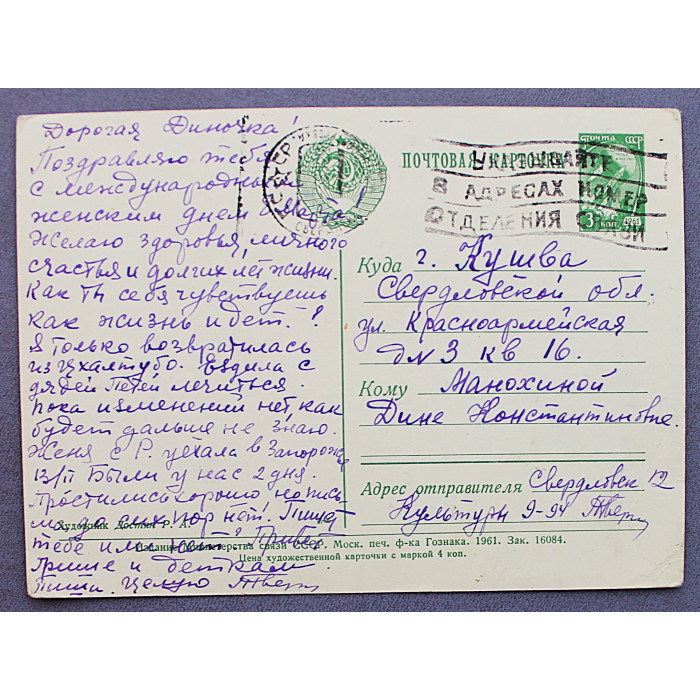 Дорогая Диночка!
Поздравляю тебя
с международным
женским днем 8 Марта
Желаю здоровья, личного
счастья и долгих лет жизни.
Как ты себя чувствуешь
как жизнь идет?
Я только возвратилась
из Цхалтубо. Ездила с
дядей Петей лечиться.
Пока изменений нет, как
будет дальше не знаю.
Женя с Р. уехала в Запорожье
13/II Были у нас 2 дня.
Простились хорошо но пись
ма до сих пор нет. Пишет
тебе или нет? Привет
Грише и деткам
Пиши. Целую
Художник Р.
ПОЧТОВАЯ КАРТОЧКА
УКАЗЫВАЙТЕ
В АДРЕСАХ НОМЕР
ОТДЕЛЕНИЯ СВЯЗИ
ПОЧТА СССР
1961
3 КОП
Куда г. Кушва
Свердловской обл.
ул. Красноармейская
д N 3 кв 16.
Кому Манохиной
Дине Константиновне.
Адрес отправителя Свердловск 12
Культуры 9-94
Издание Министерства связи СССР. Моск. печ. ф-ка Гознака. 1961. Зак. 16084.
Цена художественной карточки с маркой 4 коп.